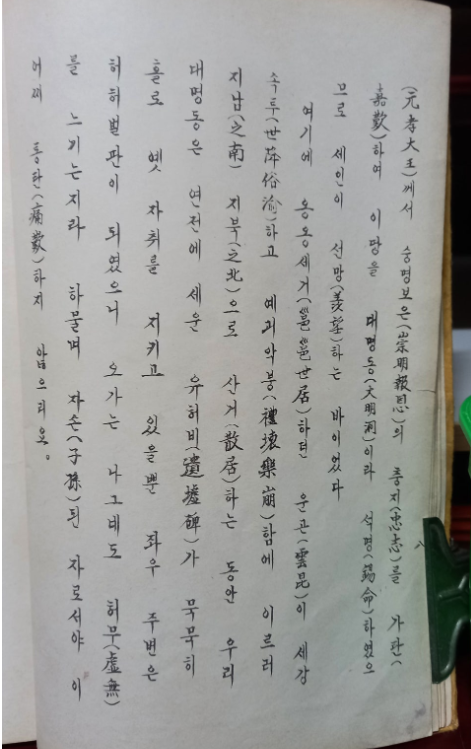 (元孝大王)께서 숭명보은(崇明報恩)의 충지(忠志)를 가탄(
嘉歎)하여 이 땅을 대명동(大明洞)이라 석명(錫命)하였으
므로 세인이 선망(羨望)하는 바이었다
여기에 옹옹세거(邕邕世居)하던 운곤(雲昆)이 세강
속투(世降俗渝)하고 예괴악붕(禮壞樂崩)함에 이르러
지남(之南) 지북(之北)으로 산거(散居)하는 동안 우리
대명동은 연전에 세운 유허비(遺墟碑)가 묵묵히
홀로 옛 자취를 지키고 있을뿐 좌우 주변은
허허벌판이 되였으니 오가는 나그네도 허무(虛無)
를 느끼는지라 하물며 자손(子孫)된 자로서야 이
어찌 통탄(痛歎)하지 않으리요。
八